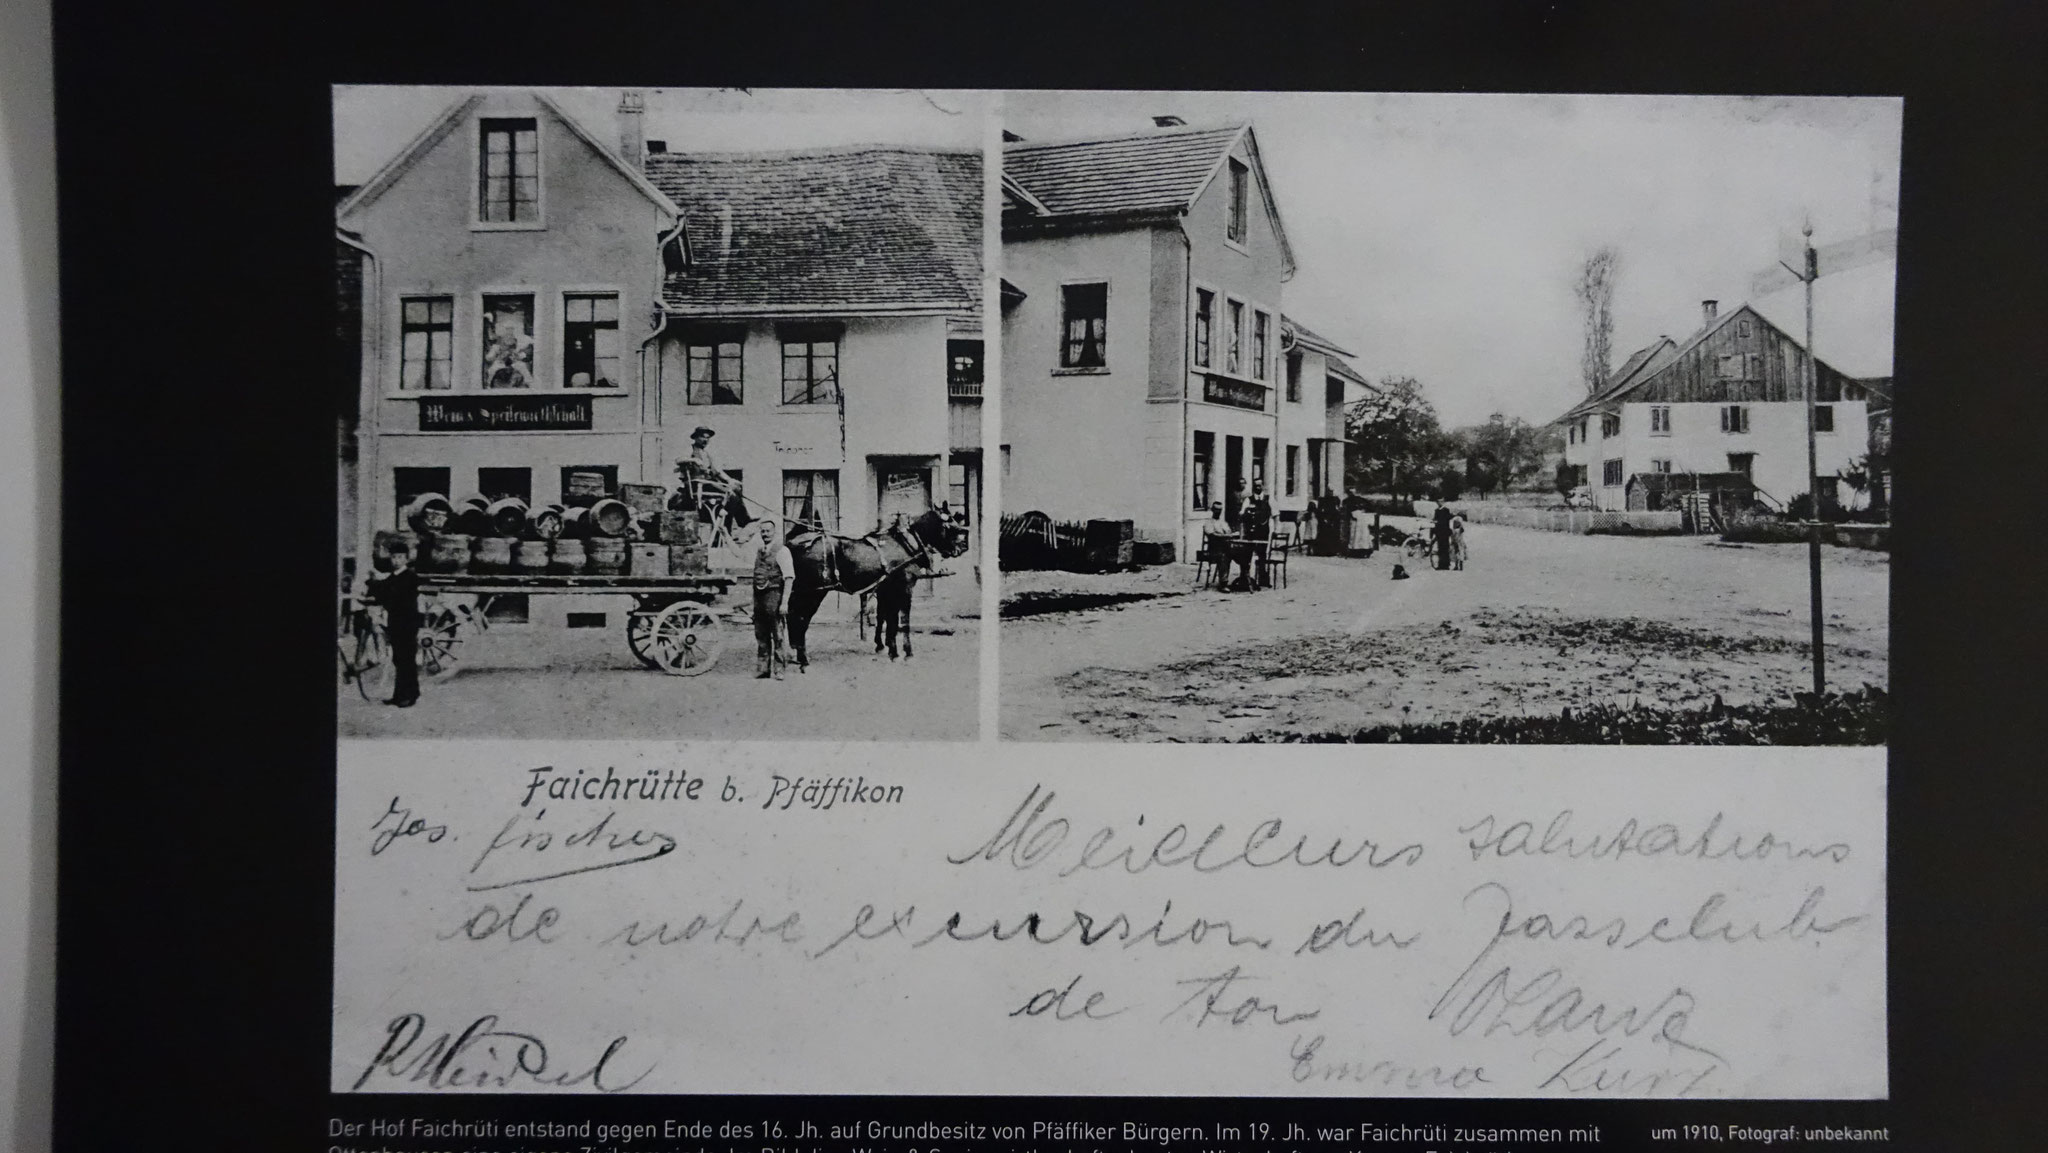 Wein & Speisewirthschaft
Faichrütte b. Pfäffikon
Jos. Fischer
Meilleurs salutations
de notre excursion du Jassclub
de ton
Emma Kunz
Der Hof Faichrüti entstand gegen Ende des 16. Jh. auf Grundbesitz von Pfäffiker Bürgern. Im 19. Jh. war Faichrüti zusammen mit
um 1910, Fotograf: unbekannt